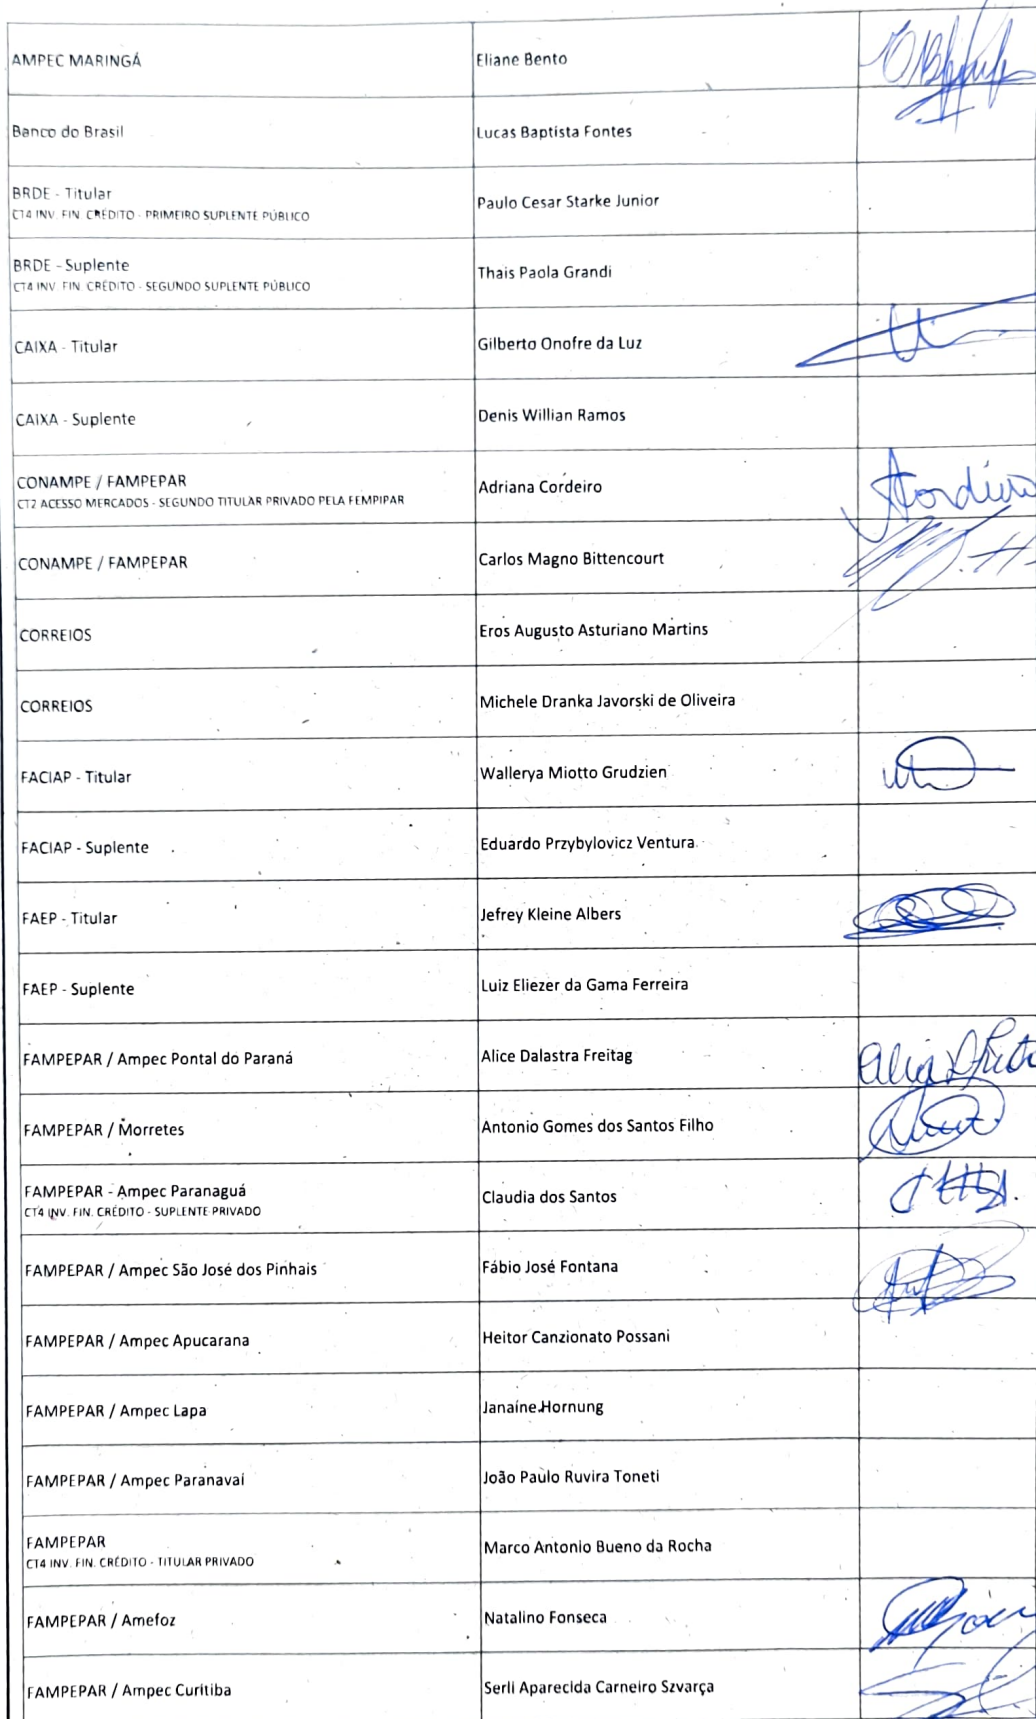 AMPEC MARINGÁ
Eliane Bento
Banco do Brasil
Lucas Baptista Fontes
BRDE - Titular
CT4 INV. FIN. CRÉDITO - PRIMEIRO SUPLENTE PÚBLICO
Paulo Cesar Starke Junior
BRDE - Suplente
CT4 INV. FIN. CRÉDITO - SEGUNDO SUPLENTE PÚBLICO
Thais Paola Grandi
CAIXA - Titular
Gilberto Onofre da Luz
CAIXA - Suplente
Denis Willian Ramos
CONAMPE / FAMPEPAR
CT2 ACESSO MERCADOS - SEGUNDO TITULAR PRIVADO PELA FEMPIPAR
Adriana Cordeiro
CONAMPE / FAMPEPAR
Carlos Magno Bittencourt
CORREIOS
Eros Augusto Asturiano Martins
CORREIOS
Michele Dranka Javorski de Oliveira
FACIAP - Titular
Wallerya Miotto Grudzien
FACIAP - Suplente
Eduardo Przybylovicz Ventura
FAEP - Titular
Jefrey Kleine Albers
FAEP - Suplente
Luiz Eliezer da Gama Ferreira
FAMPEPAR / Ampec Pontal do Paraná
Alice Dalastra Freitag
FAMPEPAR / Morretes
Antonio Gomes dos Santos Filho
FAMPEPAR - Ampec Paranaguá
CT4 INV. FIN. CRÉDITO - SUPLENTE PRIVADO
Claudia dos Santos
FAMPEPAR / Ampec São José dos Pinhais
Fábio José Fontana
FAMPEPAR / Ampec Apucarana
Heitor Canzionato Possani
FAMPEPAR / Ampec Lapa
Janaíne Hornung
FAMPEPAR / Ampec Paranavaí
João Paulo Ruvira Toneti
FAMPEPAR
CT4 INV. FIN. CRÉDITO - TITULAR PRIVADO
Marco Antonio Bueno da Rocha
FAMPEPAR / Amefoz
Natalino Fonseca
FAMPEPAR / Ampec Curitiba
Serli Aparecida Carneiro Szvarça